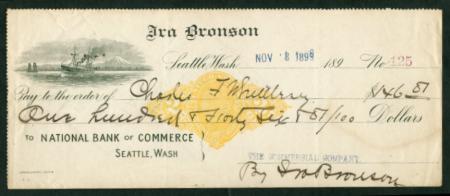 Ira Bronson
Seattle, Wash NOV 18 1899 189 No 125
Pay to the order of Charles F $146 51
One hundred & Forty Six & 51/100 Dollars
TO NATIONAL BANK OF COMMERCE
SEATTLE, WASH
THE COMMERCIAL COMPANY.
By Ira Bronson